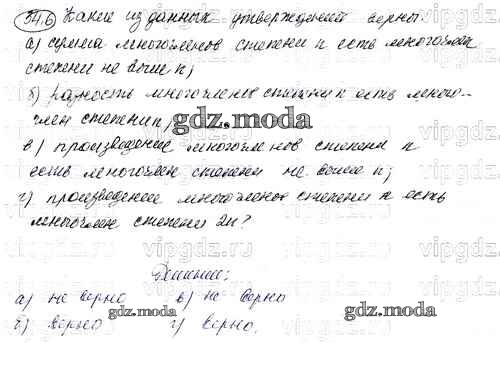 34.6 Какие из данных утверждений верны:
а) сумма многочленов степени n есть многочлен
степени не выше n;
б) разность многочленов степени n есть много-
член степени n,
gdz.moda
в) произведение многочленов степени n
есть многочлен степени не выше n;
г) произведение многочленов степени n есть
многочлен степени 2n?
Решение:
а) не верно в) не верно
б) верно г) верно.
gdz.moda gdz.moda
vipgdz.ru